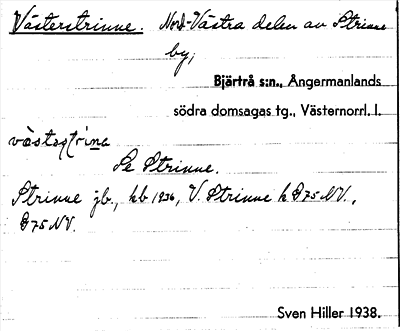 Västerstrinne. Nord-Västra delen av Strinne
by;
Bjärtrå s:n., Ångermanlands
södra domsagas tg., Västernorrl. l.
Se Strinne.
Strinne jb., hb 1936, V. Strinne h G75 NV.,
G75 NV.
Sven Hiller 1938.